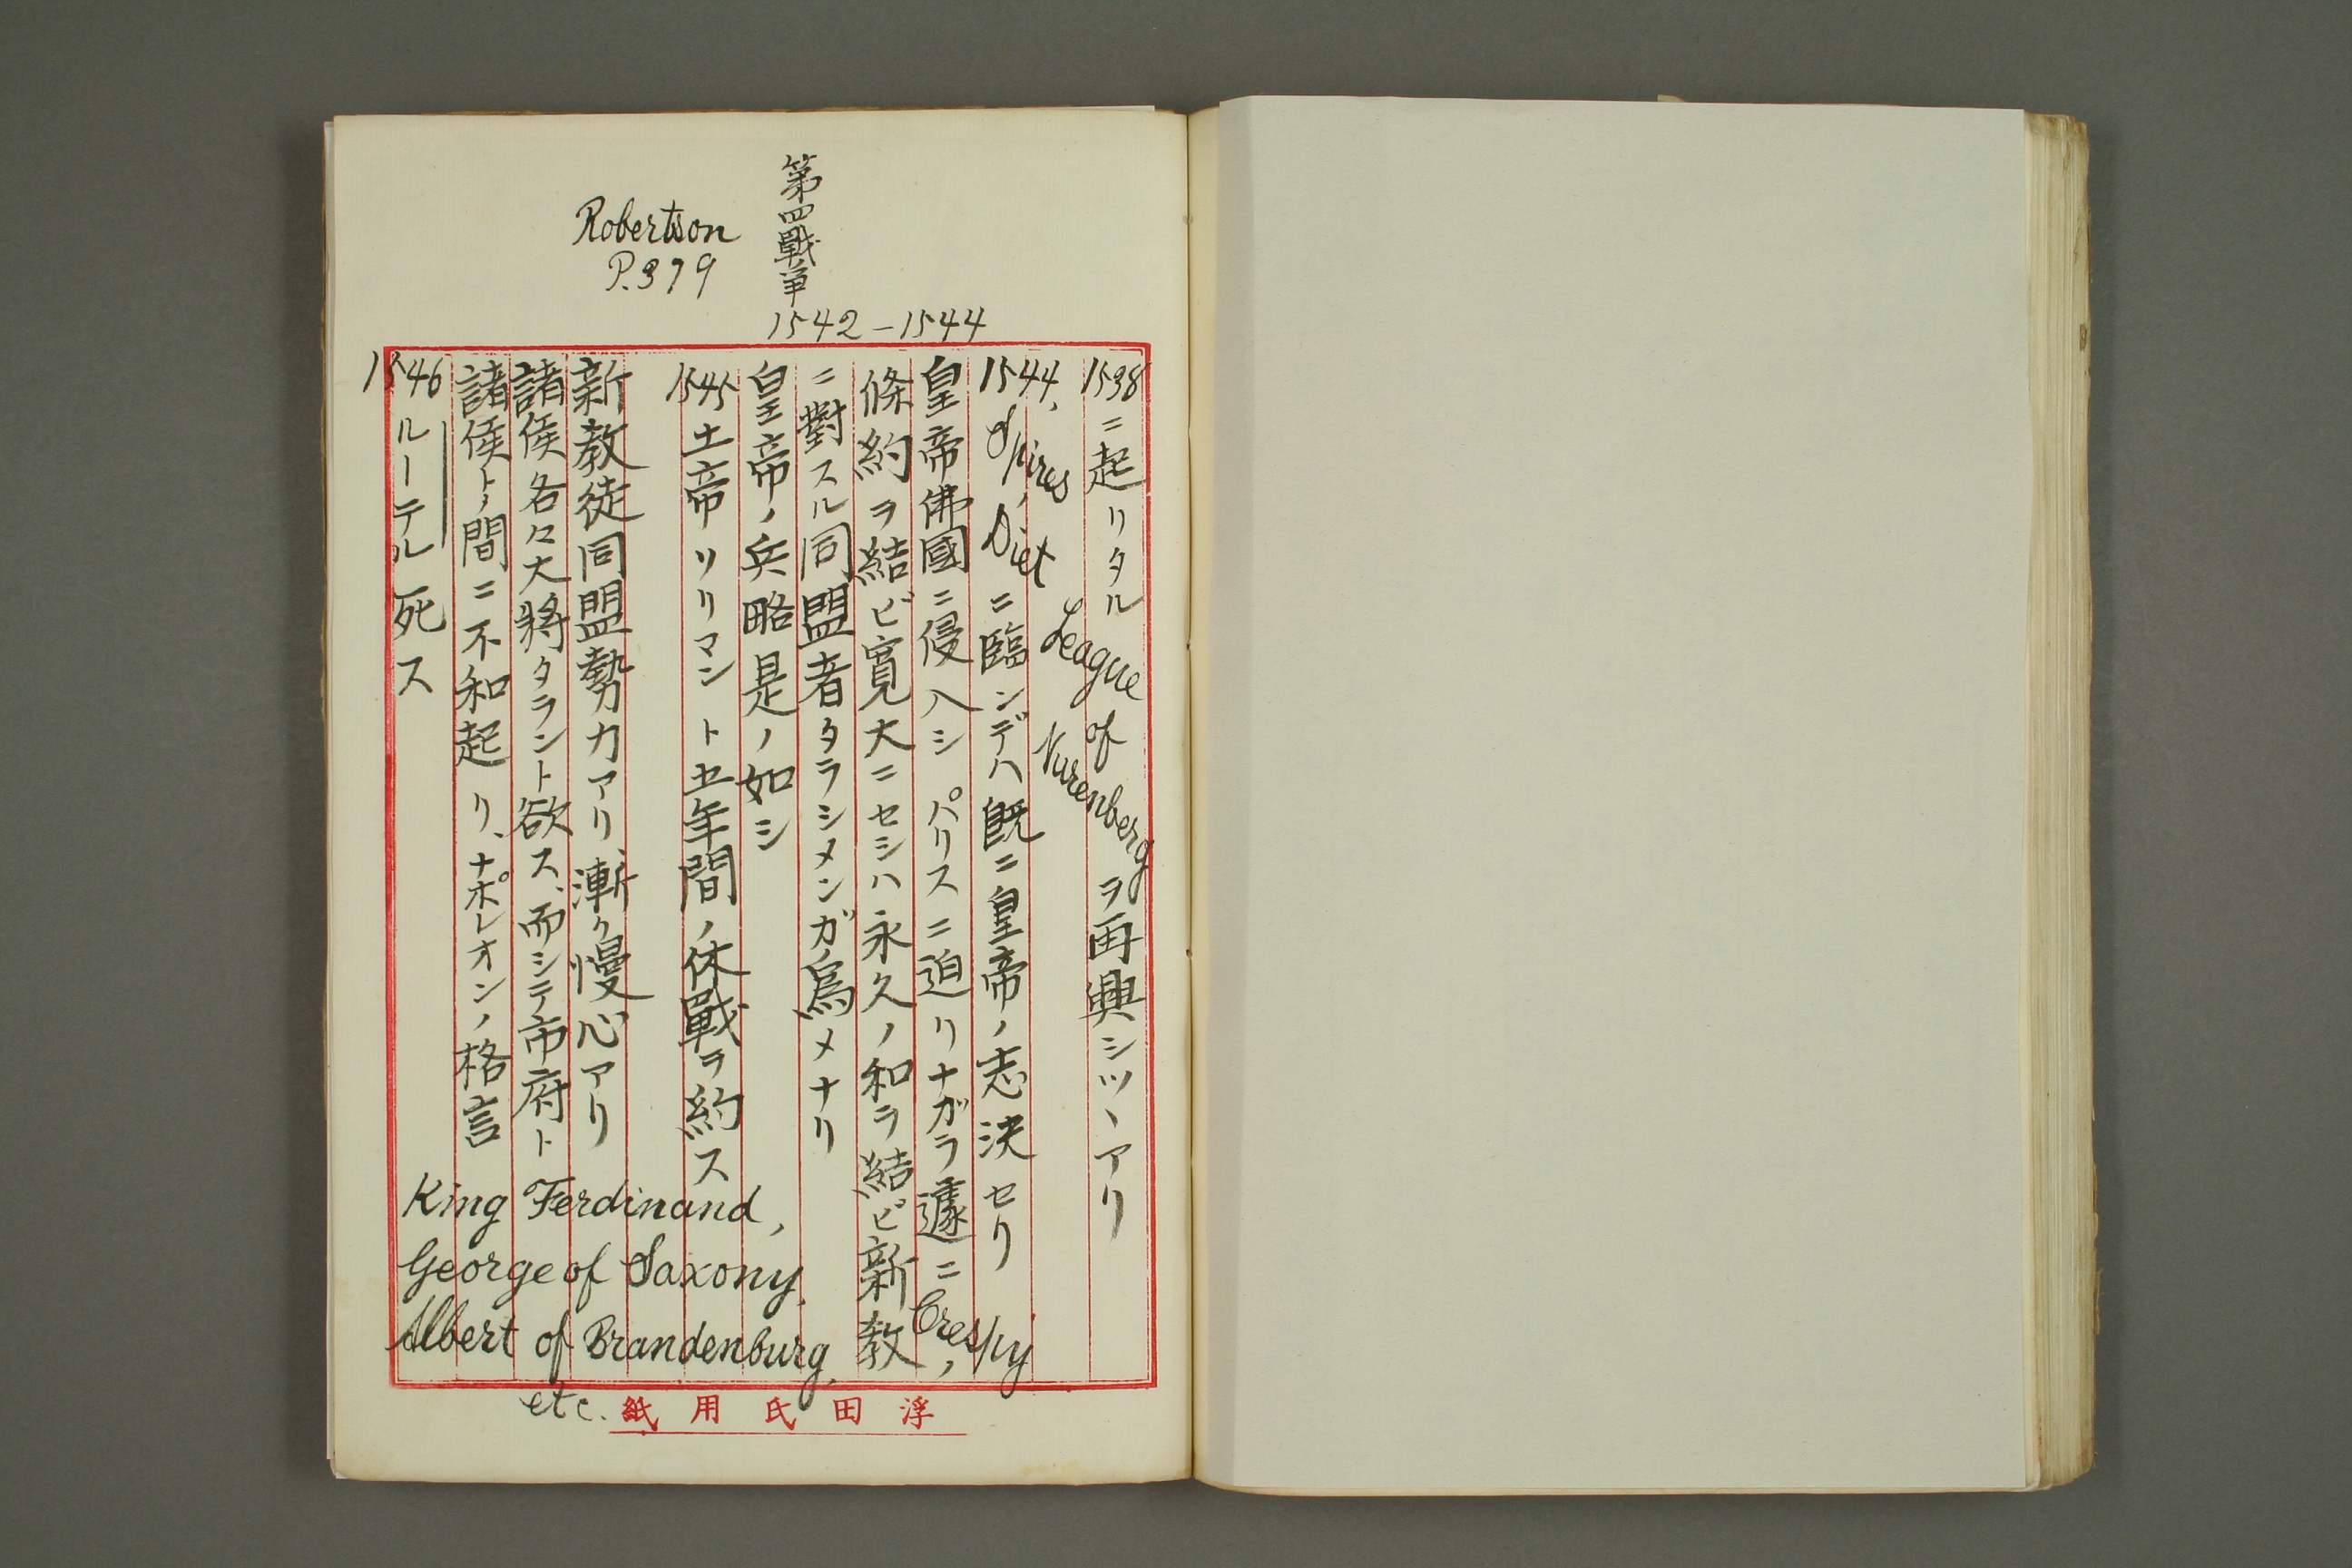 第四戰爭
1542-1544
Robertson
P.379
1538ニ起リタル League of Nurenberg ヲ再興シツヽアリ
1544, Spires, Dietニ臨ンデハ既ニ皇帝ノ志決セリ
皇帝佛國ニ侵入シ パリスニ迫リナガラ遽ニCrespy,
條約ヲ結ビ寛大ニセシハ永久ノ和ヲ結ビ新教
ニ對スル同盟者タラシメンガ爲メナリ
皇帝ノ兵略是ノ如シ
1545 土帝ソリマント五年間ノ休戰ヲ約ス
新教徒同盟勢力アリ、漸ク慢心アリ
諸侯各々大將タラント欲ス、而シテ市府ト
諸侯トノ間ニ不和起リ、ナポレオンノ格言
1546 ルーテル死ス
King Ferdinand,
George of Saxony,
Albert of Brandenburg,
etc.
浮田氏用紙